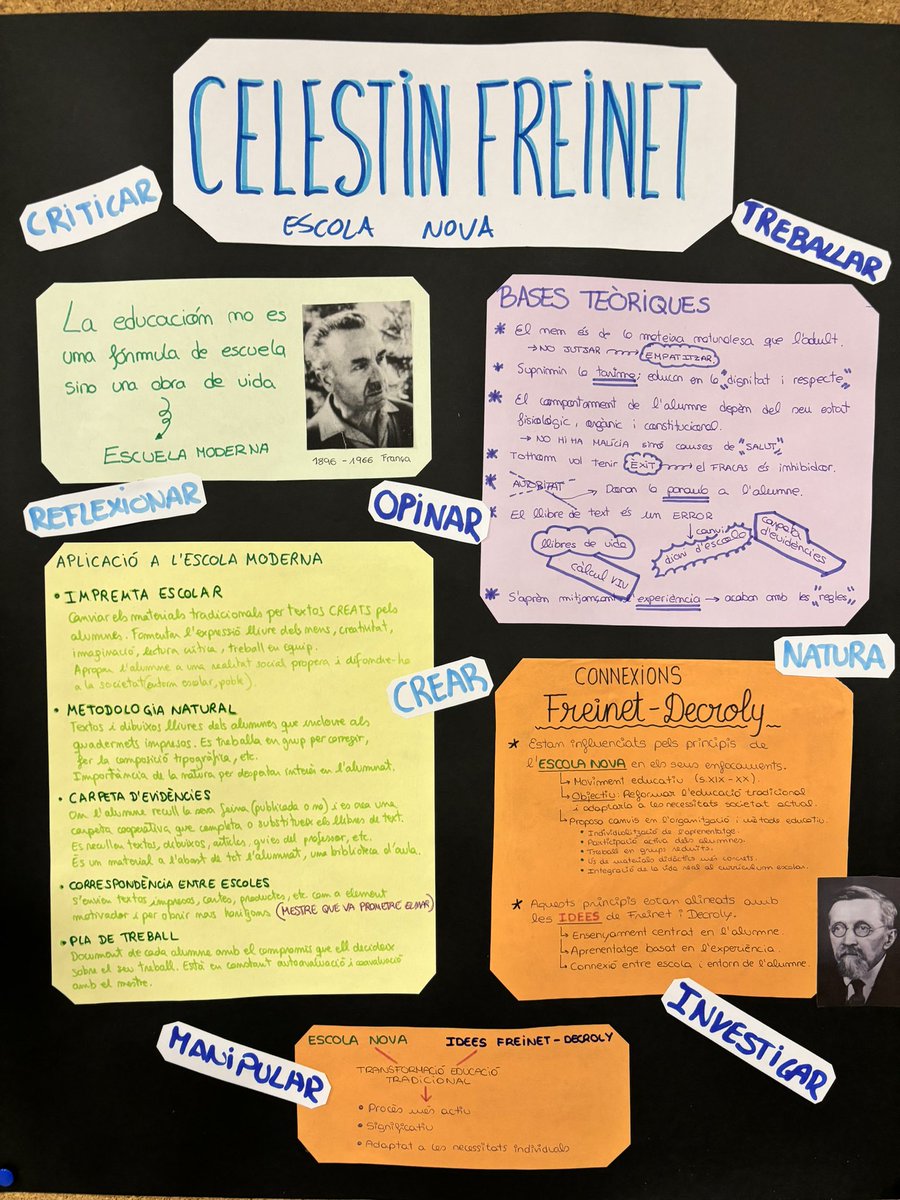 CELESTIN FREINET
ESCOLA NOVA
CRITICAR
TREBALLAR
La educación no es
una fórmula de escuela
sino una obra de vida
ESCUELA MODERNA
1896 - 1966 França
BASES TEÒRIQUES
* El nen és de la mateixa naturalesa que l'adult.
→ NO JUTJAR → EMPATITZAR
* Suprimir la tarima; educar en la "dignitat i respecte"
* El comportament de l'alumne depèn del seu estat
fisiològic, orgànic i constitucional.
→ NO HI HA MALÍCIA sinó causes de "SALUT"
* Tothom vol tenir ÈXIT → el FRACAS és inhibidor.
* AUTORITAT → Donar la paraula a l'alumne.
* El llibre de text és un ERROR
↓ canvi
llibres de vida
càlcul VIU
diari d'escola
carpeta
d'evidències
* S'aprèn mitjançant l'experiència → acabar amb les "regles"
REFLEXIONAR
OPINAR
APLICACIÓ A L'ESCOLA MODERNA
• IMPREMTA ESCOLAR
Canviar els materials tradicionals per textos CREATS pels
alumnes. Fomentar l'expressió lliure dels nens, creativitat,
imaginació, lectura crítica, treball en equip.
Apropar l'alumne a una realitat social propera i difondre-ho
a la societat (entorn escolar, poble).
• METODOLOGIA NATURAL
Textos i dibuixos lliures dels alumnes que incloure als
quadernets impresos. Es treballa en grup per corregir,
fer la composició tipogràfica, etc.
Importància de la natura per despertar interès en l'alumnat.
• CARPETA D'EVIDÈNCIES
On l'alumne recull la seva feina (publicada o no) i es crea una
carpeta cooperativa que completa o substitueix els llibres de text.
Es recullen textos, dibuixos, articles, guies del professor, etc.
És un material a l'abast de tot l'alumnat, una biblioteca d'aula.
• CORRESPONDÈNCIA ENTRE ESCOLES
S'envien textos impresos, cartes, productes, etc. com a element
motivador i per obrir nous horitzons (MESTRE QUE VA PROMETRE EL MAR)
• PLA DE TREBALL
Document de cada alumne amb el compromís que ell decideix
sobre el seu treball. Està en constant autoavaluació i coavaluació
amb el mestre.
CREAR
NATURA
CONNEXIONS
Freinet-Decroly
* Estan influenciats pels principis de
l'ESCOLA NOVA en els seus enfocaments.
↳ Moviment educatiu (s.XIX - XX).
↳ Objectiu: Reformar l'educació tradicional
i adaptarla a les necessitats societat actual.
↳ Proposa canvis en l'organització i mètode educatiu.
• Individualització de l'aprenentatge.
• Participació activa dels alumnes.
• Treball en grups reduïts.
• Ús de materials didàctics més concrets.
• Integració de la vida real al currículum escolar.
* Aquests principis estan alineats amb
les IDEES de Freinet i Decroly.
↳ Ensenyament centrat en l'alumne.
↳ Aprenentatge basat en l'experiència.
↳ Connexió entre escola i entorn de l'alumne.
MANIPULAR
INVESTIGAR
ESCOLA NOVA IDEES FREINET-DECROLY
TRANSFORMACIÓ EDUCACIÓ
TRADICIONAL
• Procès més actiu
• Significatiu
• Adaptat a les necessitats individuals